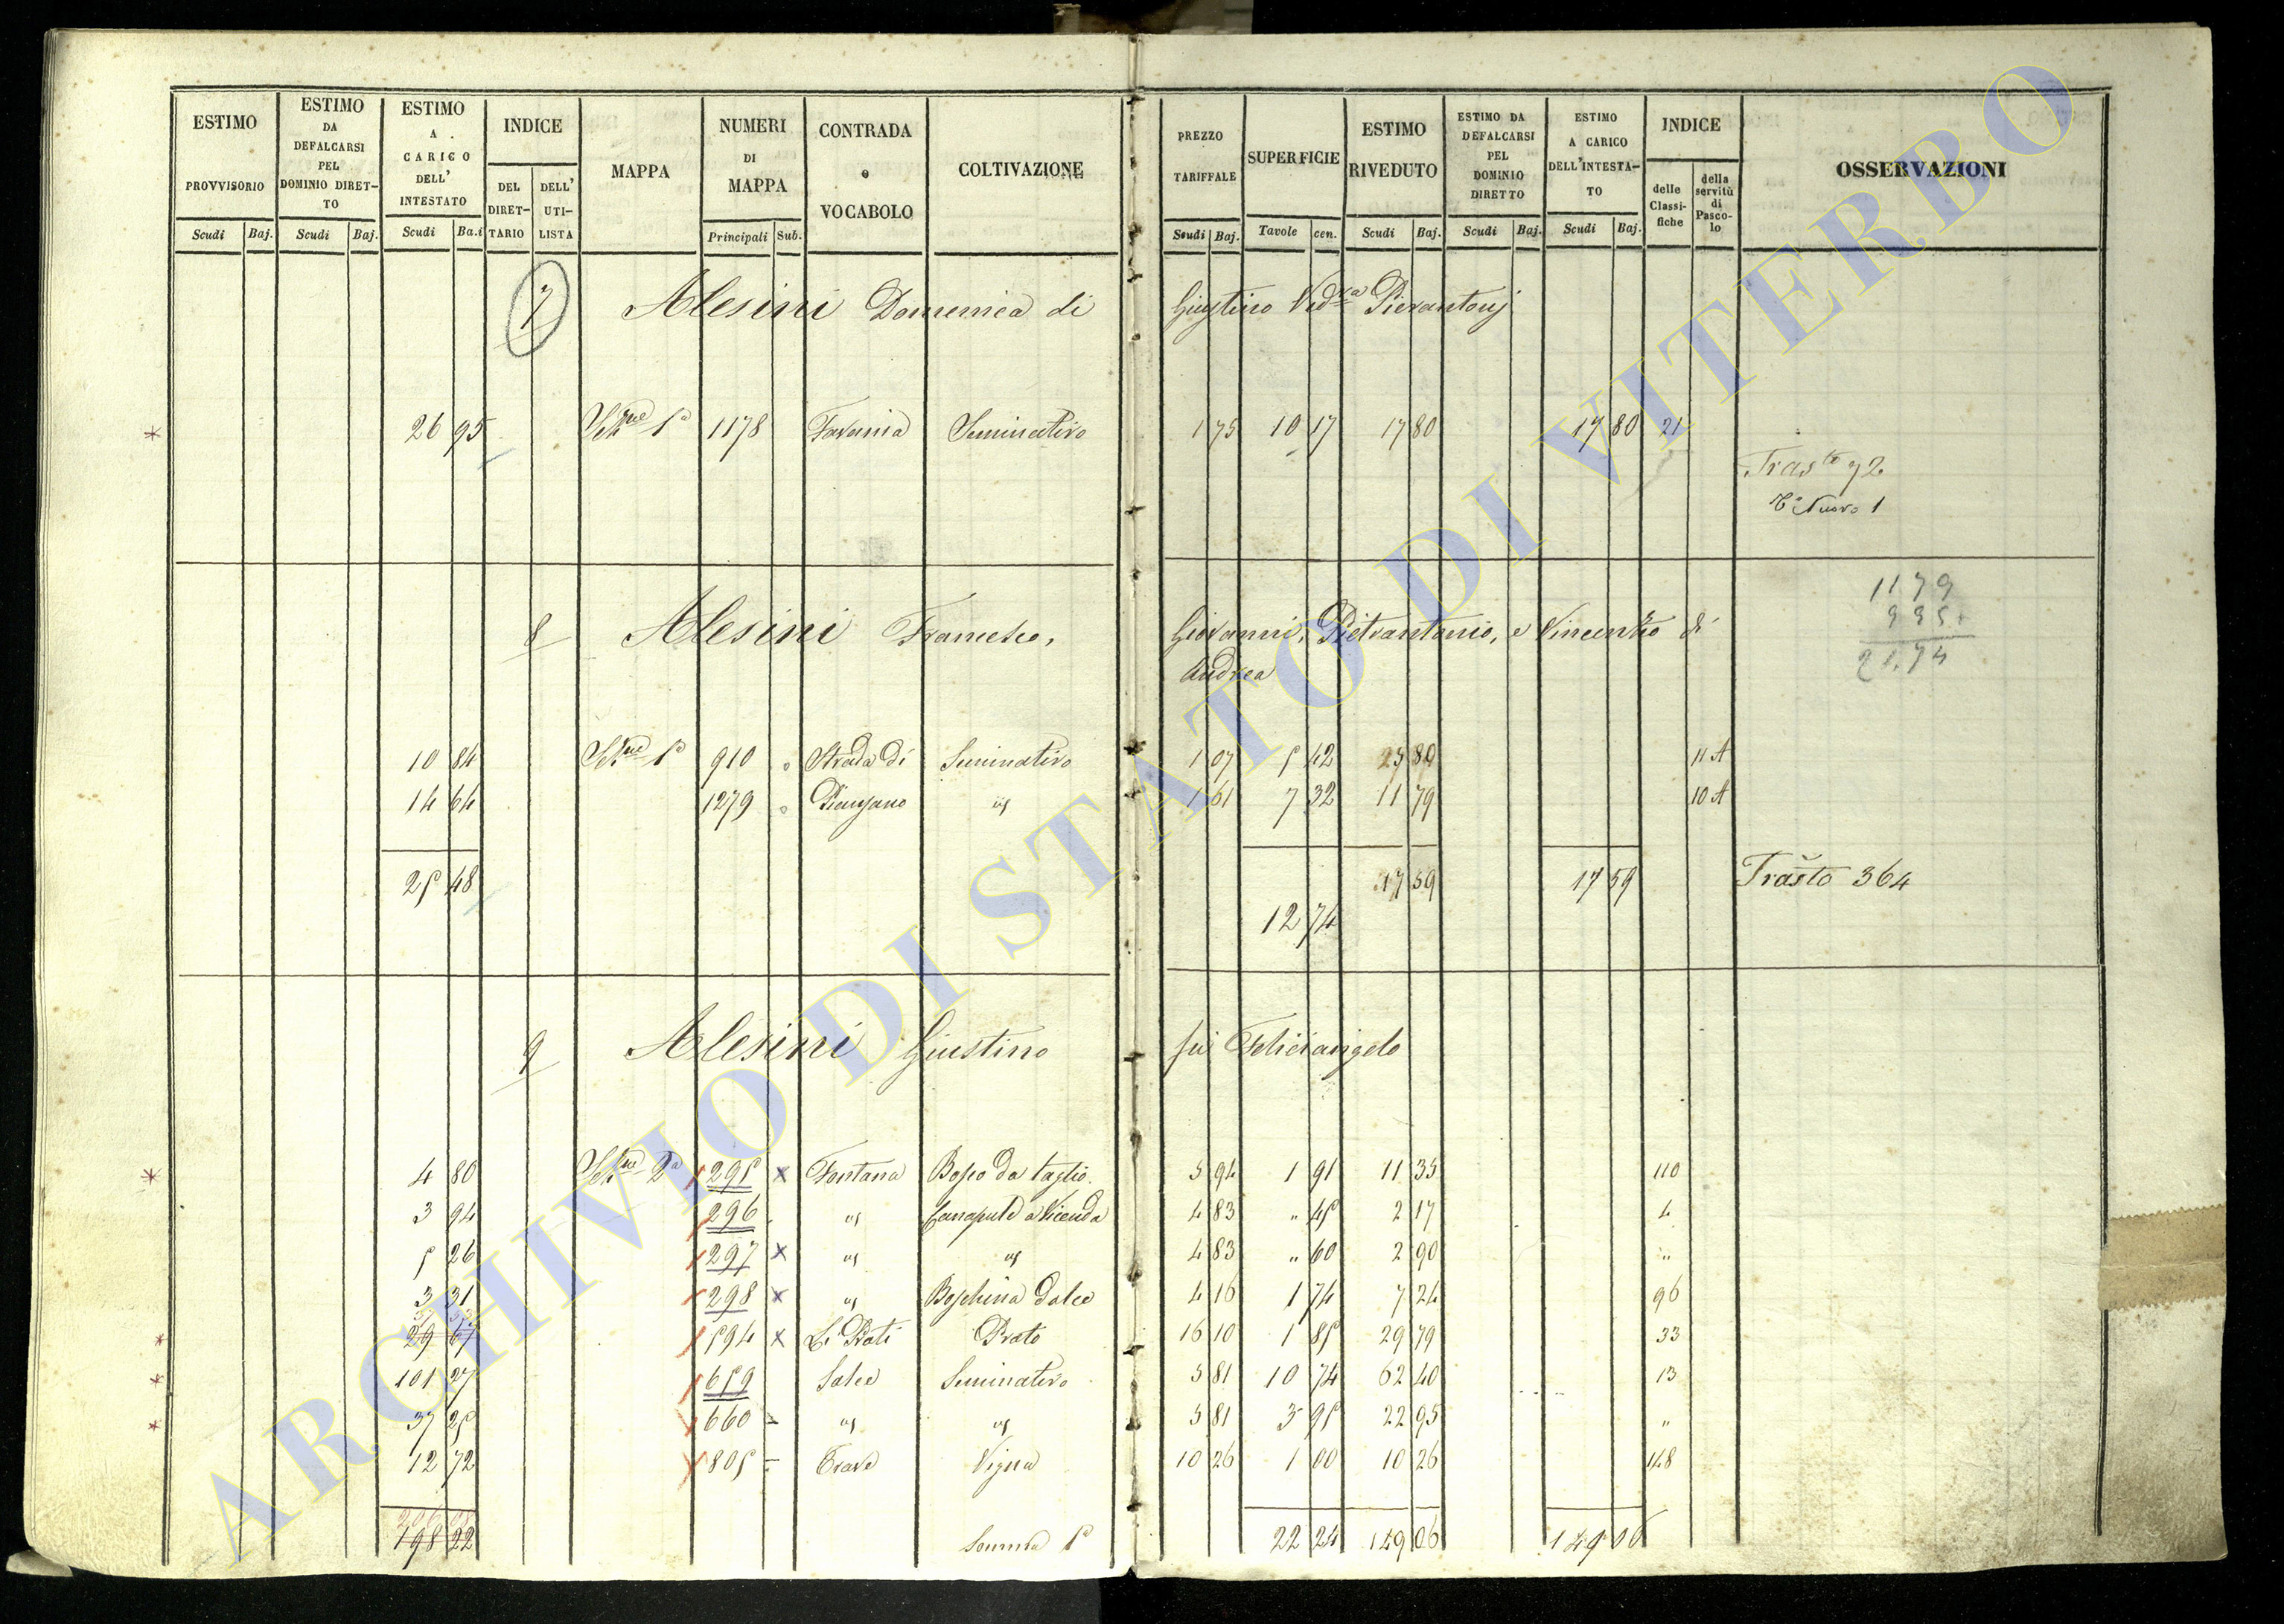 ESTIMO PROVVISORIO Scudi Baj.
ESTIMO DA DEFALCARSI PEL DOMINIO DIRET-TO Scudi Baj.
ESTIMO A CARICO DELL' INTESTATO Scudi Ba.i
INDICE DEL DIRET-TARIO DELL' UTI-LISTA
MAPPA
NUMERI DI MAPPA Principali Sub.
CONTRADA o VOCABOLO
COLTIVAZIONE
PREZZO TARIFFALE Scudi Baj.
SUPERFICIE Tavole cen.
ESTIMO RIVEDUTO Scudi Baj.
ESTIMO DA DEFALCARSI PEL DOMINIO DIRETTO Scudi Baj.
ESTIMO A CARICO DELL'INTESTA-TO Scudi Baj.
INDICE delle Classi-fiche della servitù di Pasco-lo
OSSERVAZIONI
7 Alesini Domenica di Giustino Ved.va Pierantonj
26 95 Sez.ne 1a 1178 Seminativo 1 75 10 17 17 80 17 80 21
Trasto 72
Nuovo 1
8 Alesini Francesco, Giovanni, Pietrantonio, e Vincenzo di
Andrea
1179
995
21.74
10 84 Sez.ne 1a 910 Strada di Seminativo 1 07 5 42 11 A
14 64 1279 Pianzano id 1 61 7 32 11 79 10 A
25 48 17 59 17 59 Trasto 364
12 74
9 Alesini Giustino fu Feliciangelo
4 80 Sez.ne 2a 295 x Fontana Bosco da taglio 5 94 1 91 11 35 110
3 94 296 id Canapule a Vicenda 4 83 " 45 2 17 4
5 26 297 x id id 4 83 " 60 2 90 "
3 31 298 x id Boschina dolce 4 16 1 74 7 24 96
29 67 594 x Li Prati Prato 16 10 1 85 29 79 33
101 27 659 Salce Seminativo 5 81 10 74 62 40 13
37 25 660 id id 5 81 3 95 22 95 "
12 72 805 Trave Vigna 10 26 1 00 10 26 148
198 22 Somma 1a 22 24 149 06 149 06
ARCHIVIO DI STATO DI VITERBO